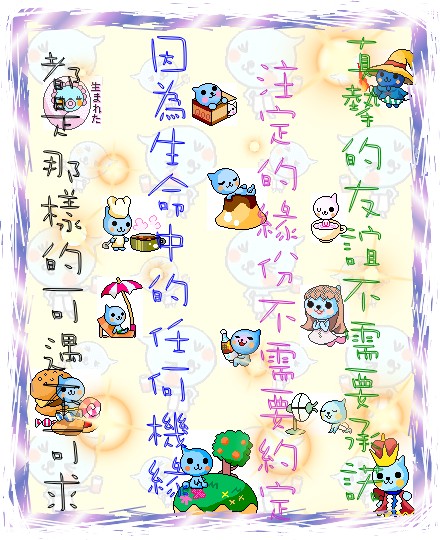 真摯的友誼不需要承諾
注定的緣份不需要約定
因為生命中的任何機緣
都是那樣的可遇不可求
生まれた